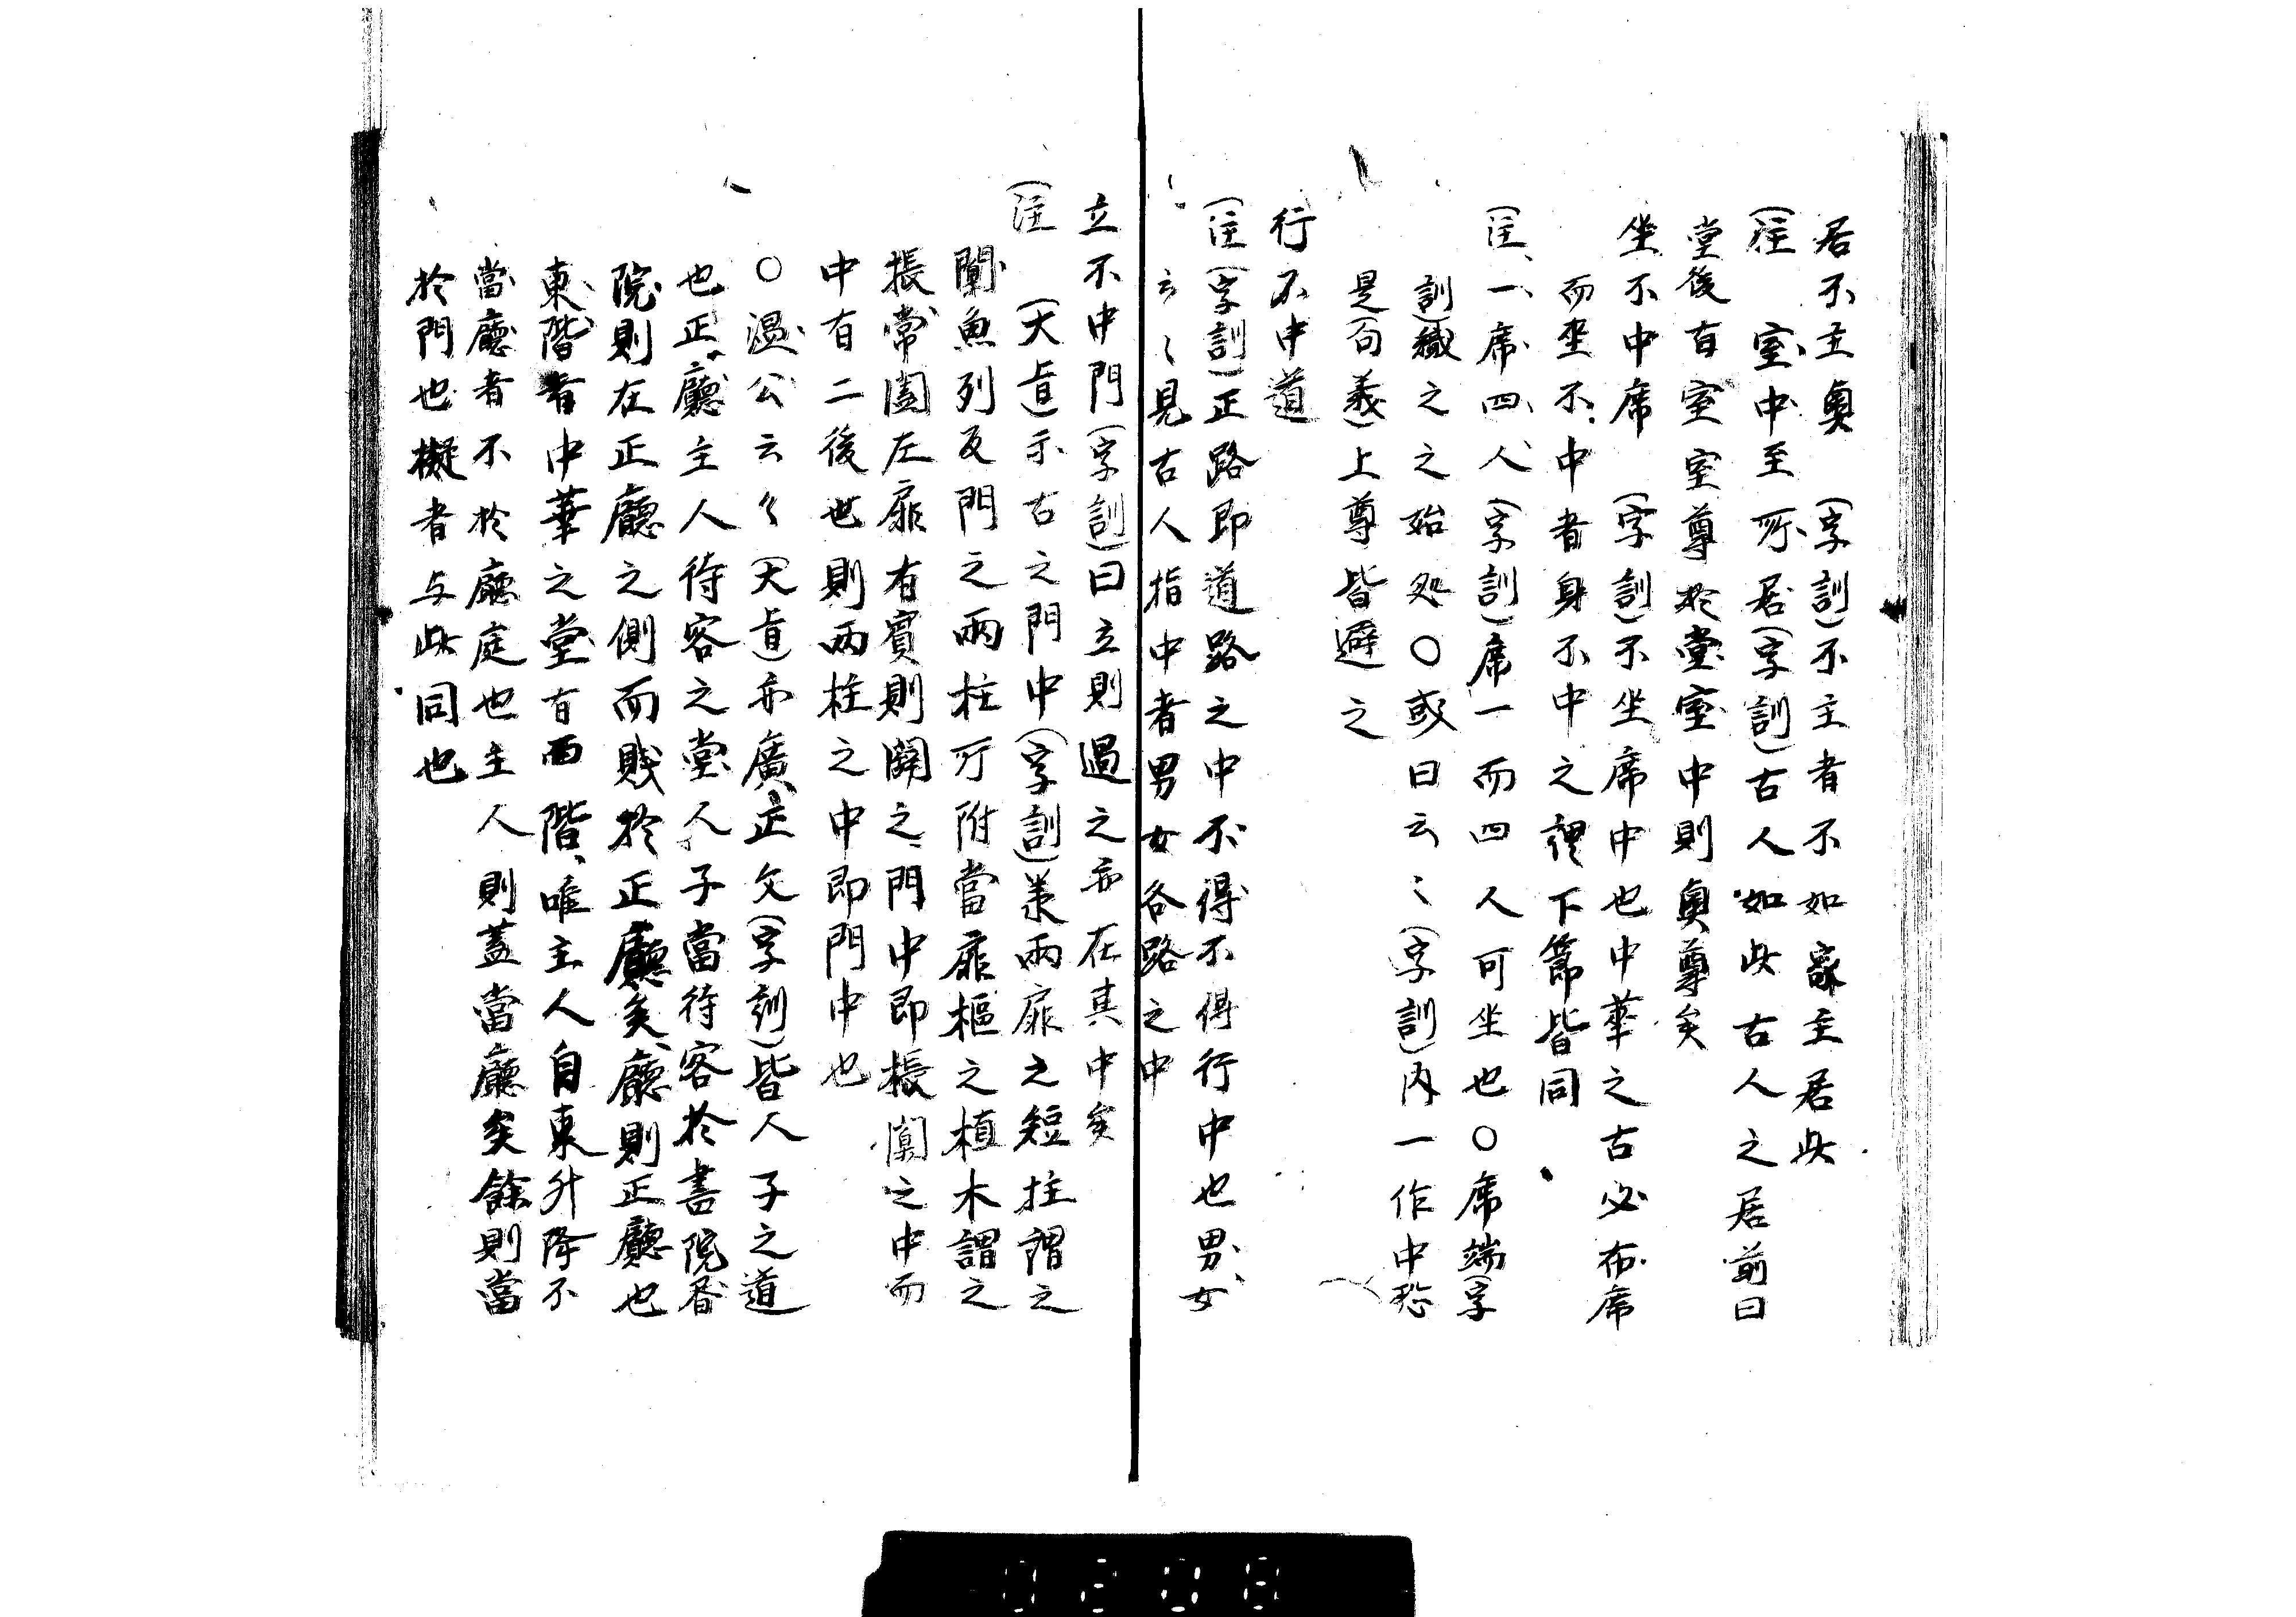 居不主奧　(字訓)不主者不如家主居此
(注　室中至所居(字訓)古人如此古人之居前曰
堂後有室室尊於堂室中則奧尊矣
坐不中席　(字訓)不坐席中也中華之古必布席
而坐不中者身不中之裡下節皆同
(注一席四人(字訓)席一而四人可坐也○席端(字
訓)織之之始処○或曰云〻(字訓)内一作中恐
是(句義)上尊皆避之
行不中道
(注(字訓)正路即道路之中不得不得行中也男女
云〻見古人指中者男女各路之中
立不中門(字訓)曰立則過之亦在其中矣
(注　(大旨)示古之門中(字訓)棨兩扉之短拄謂之
闑魚列反門之兩柱所附當扉樞之植木謂之
棖常闔左扉有賓則闢之門中即棖闑之中而
中有二後世則兩柱之中即門中也
○溫公云々(大旨)亦廣正文(字訓)皆人子之道
也正廳主人待客之堂人子當待客於書院書
院則在正廳之側而賤於正廳矣廳則正廳也
東階者中華之堂有兩階唯主人自東升降不
當廳者不於廳庭也主人則蓋當廳矣餘則當
於門也擬者与此同也
0208